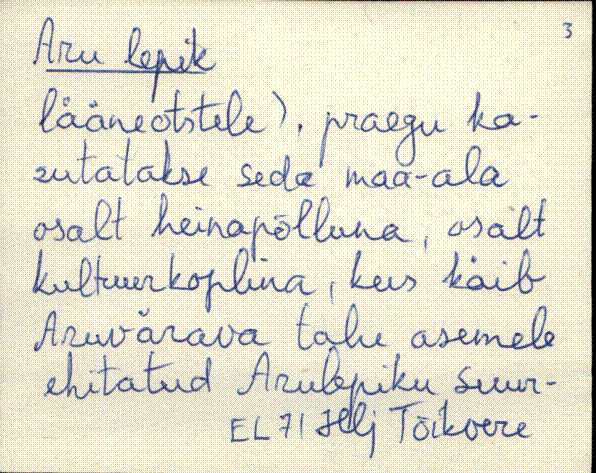 3
Aru lepik
lääneotstele). praegu ka-
sutatakse seda maa-ala
osalt heinapõlluna, osalt
kultuurkoplina, kus käib
Aruvärava talu asemele
ehitatud Arulepiku suur-
EL 71 Helj Tõikvere